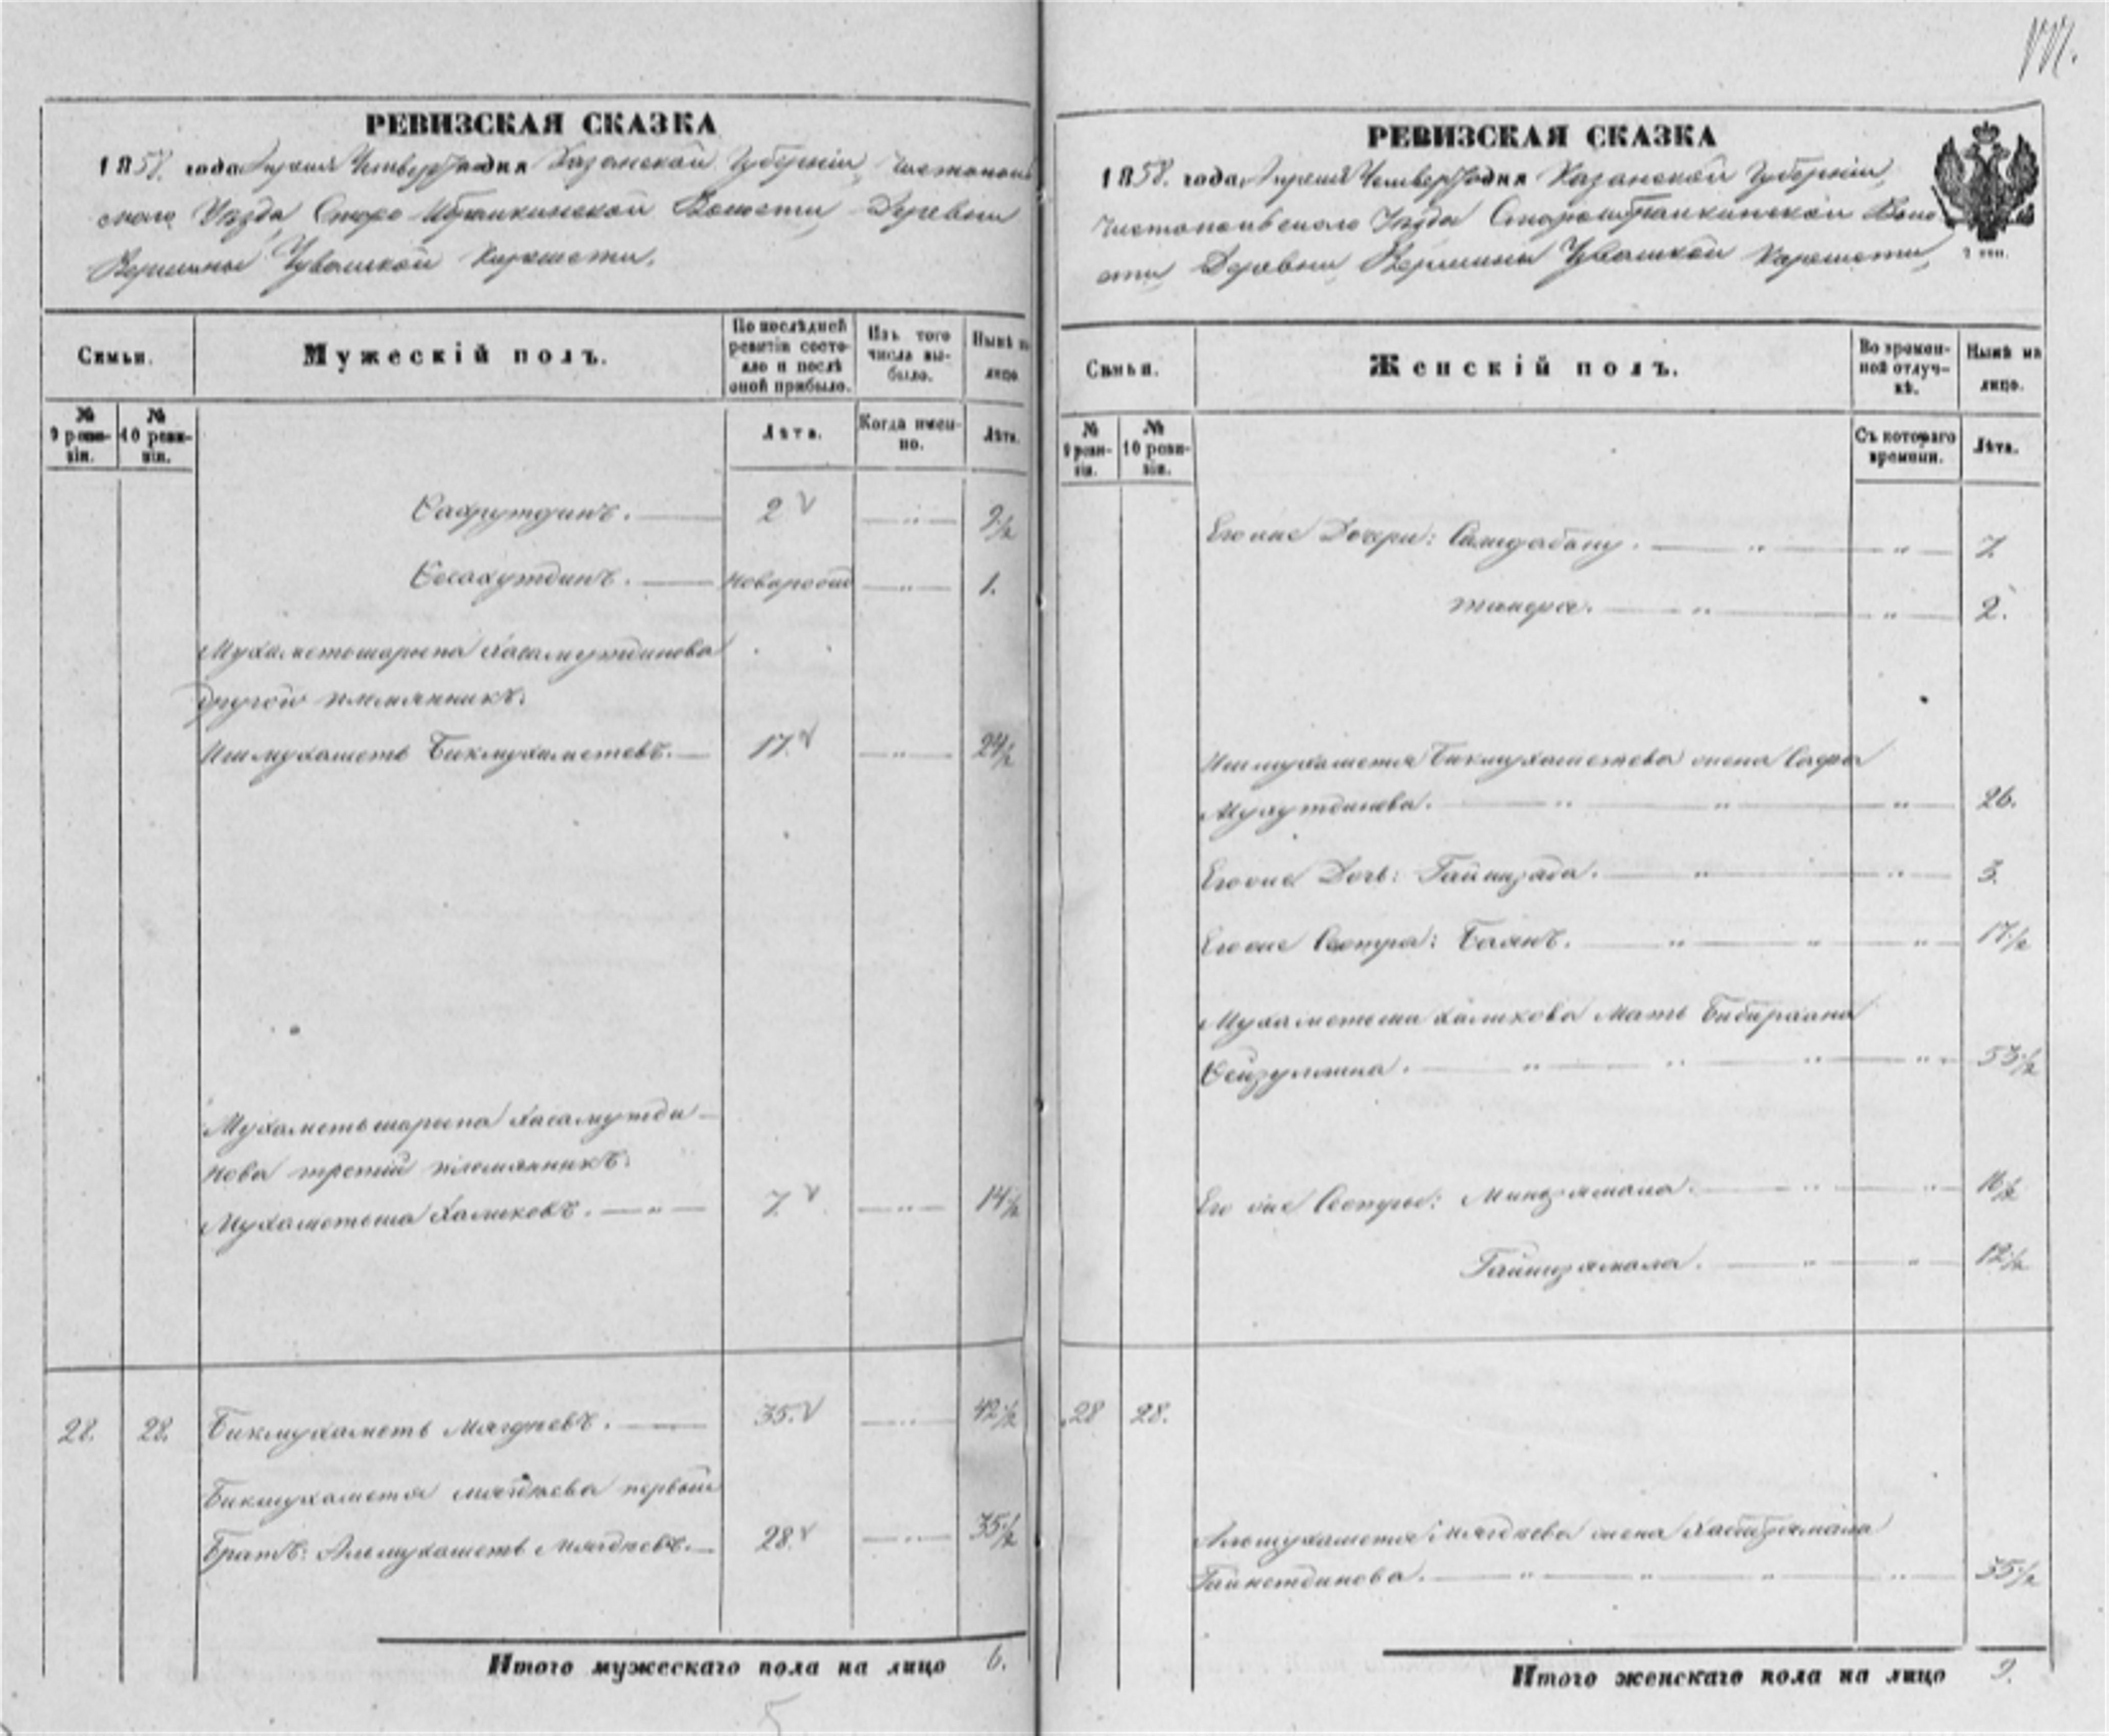 РЕВИЗСКАЯ СКАЗКА
1858. года Апреля Четвертаго дня Казанской Губерніи, Чистополь
скаго Уезда, Старо Ибрайкинской Волости, Деревни
Вершины Чувашской Киремети.
Семьи.
Мужескій полъ.
По послѣдней ревизіи состояло и послѣ оной прибыло.
Изъ того числа выбыло.
Нынѣ на лицо.
№ 9 ревизіи.
№ 10 ревизіи.
Лѣта.
Когда именно.
Лѣта.
2
9 1/2
новорожд
1.
Мухаметьшарыпа Хасамутдинова
другой племянникъ:
Ишмухаметь Бикмухаметевъ.
17.
24 1/2
Мухаметьшарыпа Хасамутди-
нова третий племянникъ:
Мухаметьша Халиковъ.
7.
14 1/2
28.
28.
Бикмухаметь Мягдеевъ.
35.
42 1/2
Бикмухаметя Мягдеева первый
Братъ: Альмухаметь Мягдеевъ.
28
35 1/2
Итого мужескаго пола на лицо 6.
РЕВИЗСКАЯ СКАЗКА
1858. года, Апреля Четвертаго дня Казанской Губерніи,
Чистопольскаго Уезда Староибрайкинской Воло
сти, Деревни, Вершины Чувашкой Киремети,
2 коп.
Семьи.
Женскій полъ.
Во временной отлучкѣ.
Нынѣ на лицо.
№ 9 ревизіи.
№ 10 ревизіи.
Съ котораго времени.
Лѣта.
Егоже Дочери:
7.
2.
Ишмухаметя Бикмухаметева жена Сафа
26.
Егоже Дочь: Гайнизада.
3.
Егоже Сестра: Баянъ.
17 1/2
Мухаметьши Халикова Мать Бибирхана
Фейзуллина.
53 1/2
Его же Сестры: Минзямала.
16 1/2
Гайнизямала.
12 1/2
28
28.
Альмухаметя Мягдеева жена Хабизямала
Гайнетдинова.
35 1/2
Итого женскаго пола на лицо 9.